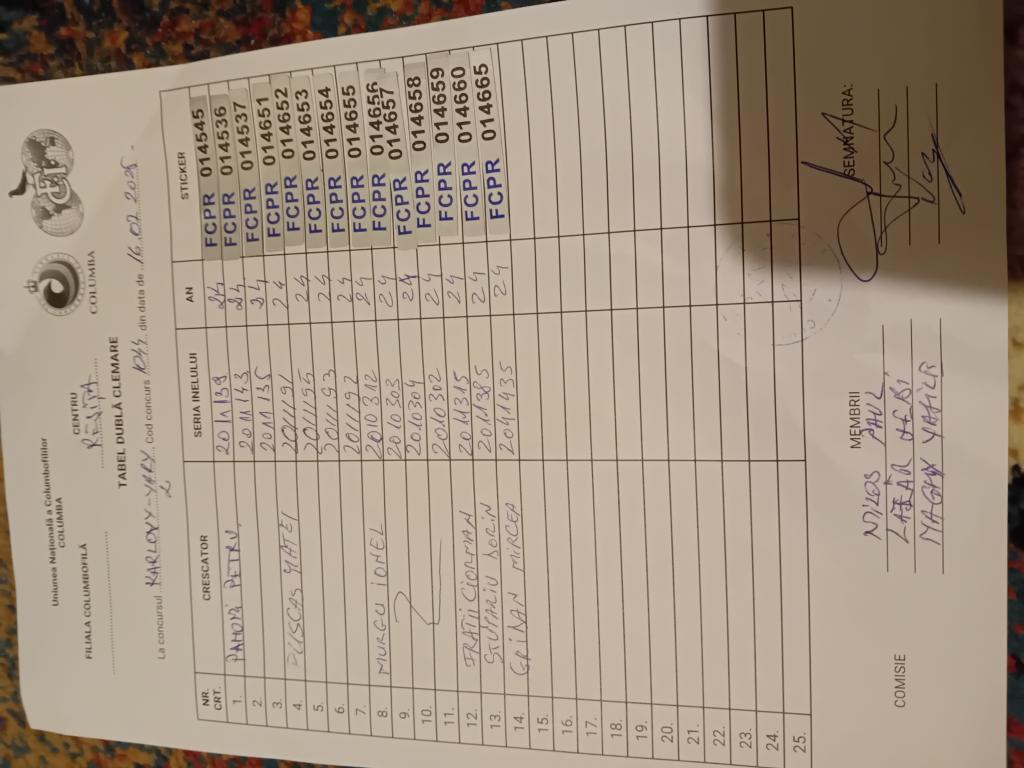 Uniunea Națională a Columbofililor
COLUMBA
COLUMBA
FILIALA COLUMBOFILĂ
CENTRU
REȘIȚA
TABEL DUBLĂ CLEMARE
La concursul KARLOVY-VARY 2 Cod concurs din data de 16.07 2025.
NR. CRT. CRESCATOR SERIA INELULUI AN STICKER
1. PETRU 2011139 24 FCPR 014545
2. 2011143 24 FCPR 014536
3. 2011135 24 FCPR 014537
4. PUSCAS MATEI 2011191 24 FCPR 014651
5. 2011195 24 FCPR 014652
6. 2011193 24 FCPR 014653
7. 2011192 24 FCPR 014654
8. MURGU IONEL 2010312 24 FCPR 014655
9. 2010303 24 FCPR 014656
10. 2010304 24 FCPR 014657
11. 2010302 24 FCPR 014658
12. FRAȚII CIORMAN 2011315 24 FCPR 014659
13. STUPARIU DORIN 2011385 24 FCPR 014660
14. GRINAN MIRCEA 2041435 24 FCPR 014665
15.
16.
17.
18.
19.
20.
21.
22.
23.
24.
25.
COMISIE
MEMBRII
SEMNATURA:
PAUL
LAZĂR